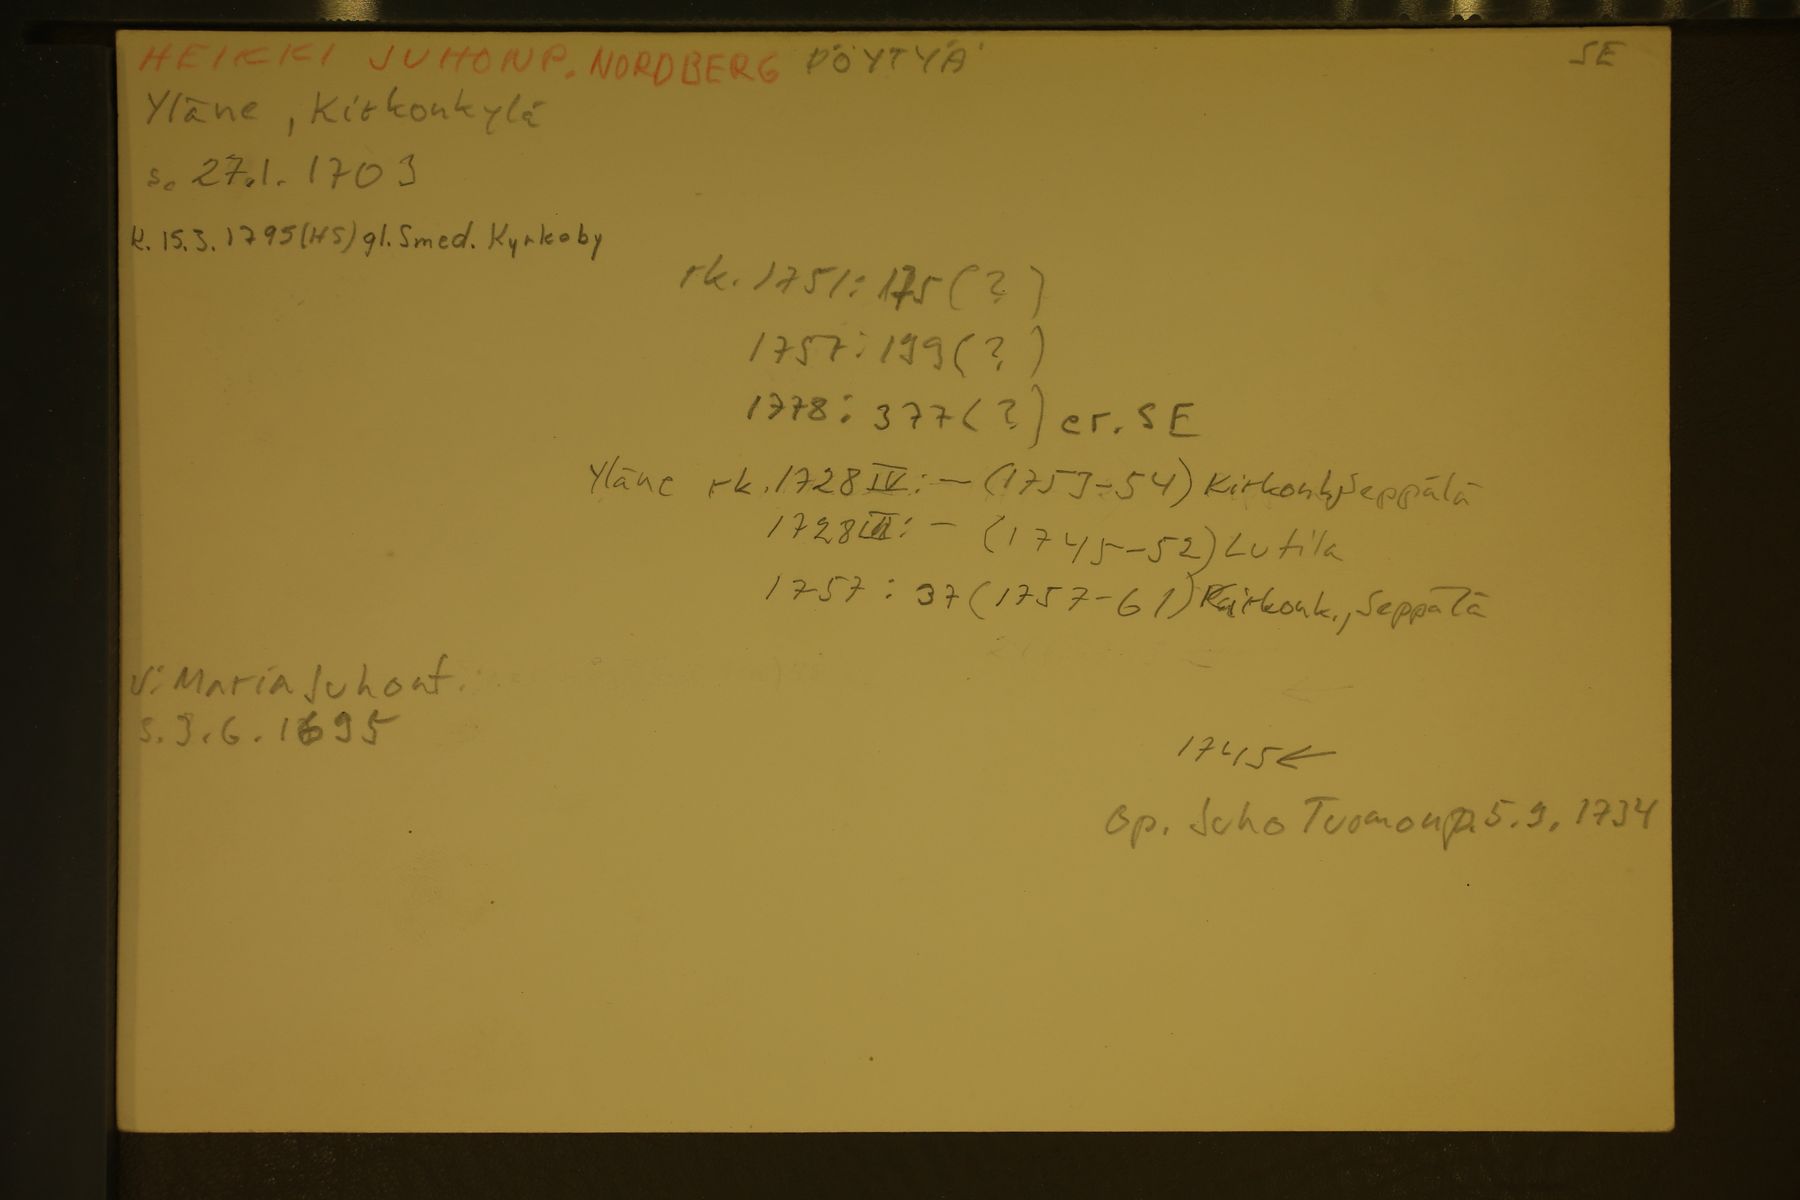 HEIKKI JUHONP. NORDBERG PÖYTYÄ SE
Yläne, Kirkonkylä
s. 27.1. 1703
k. 15.3. 1795 (HS) gl. Smed. Kyrkoby
rk. 1751: 175 (?)
1757: 199 (?)
1778: 377 (?) er. SE
Yläne rk. 1728 IV: – (1753-54) Kirkonk, Seppälä
1728 II: – (1745-52) Lutila
1757: 37 (1757-61) Kirkonk., Seppälä
V: Maria Juhont.
s. 3.6. 1695
1745 ←
op. Juho Tuomonp. 5.9. 1734